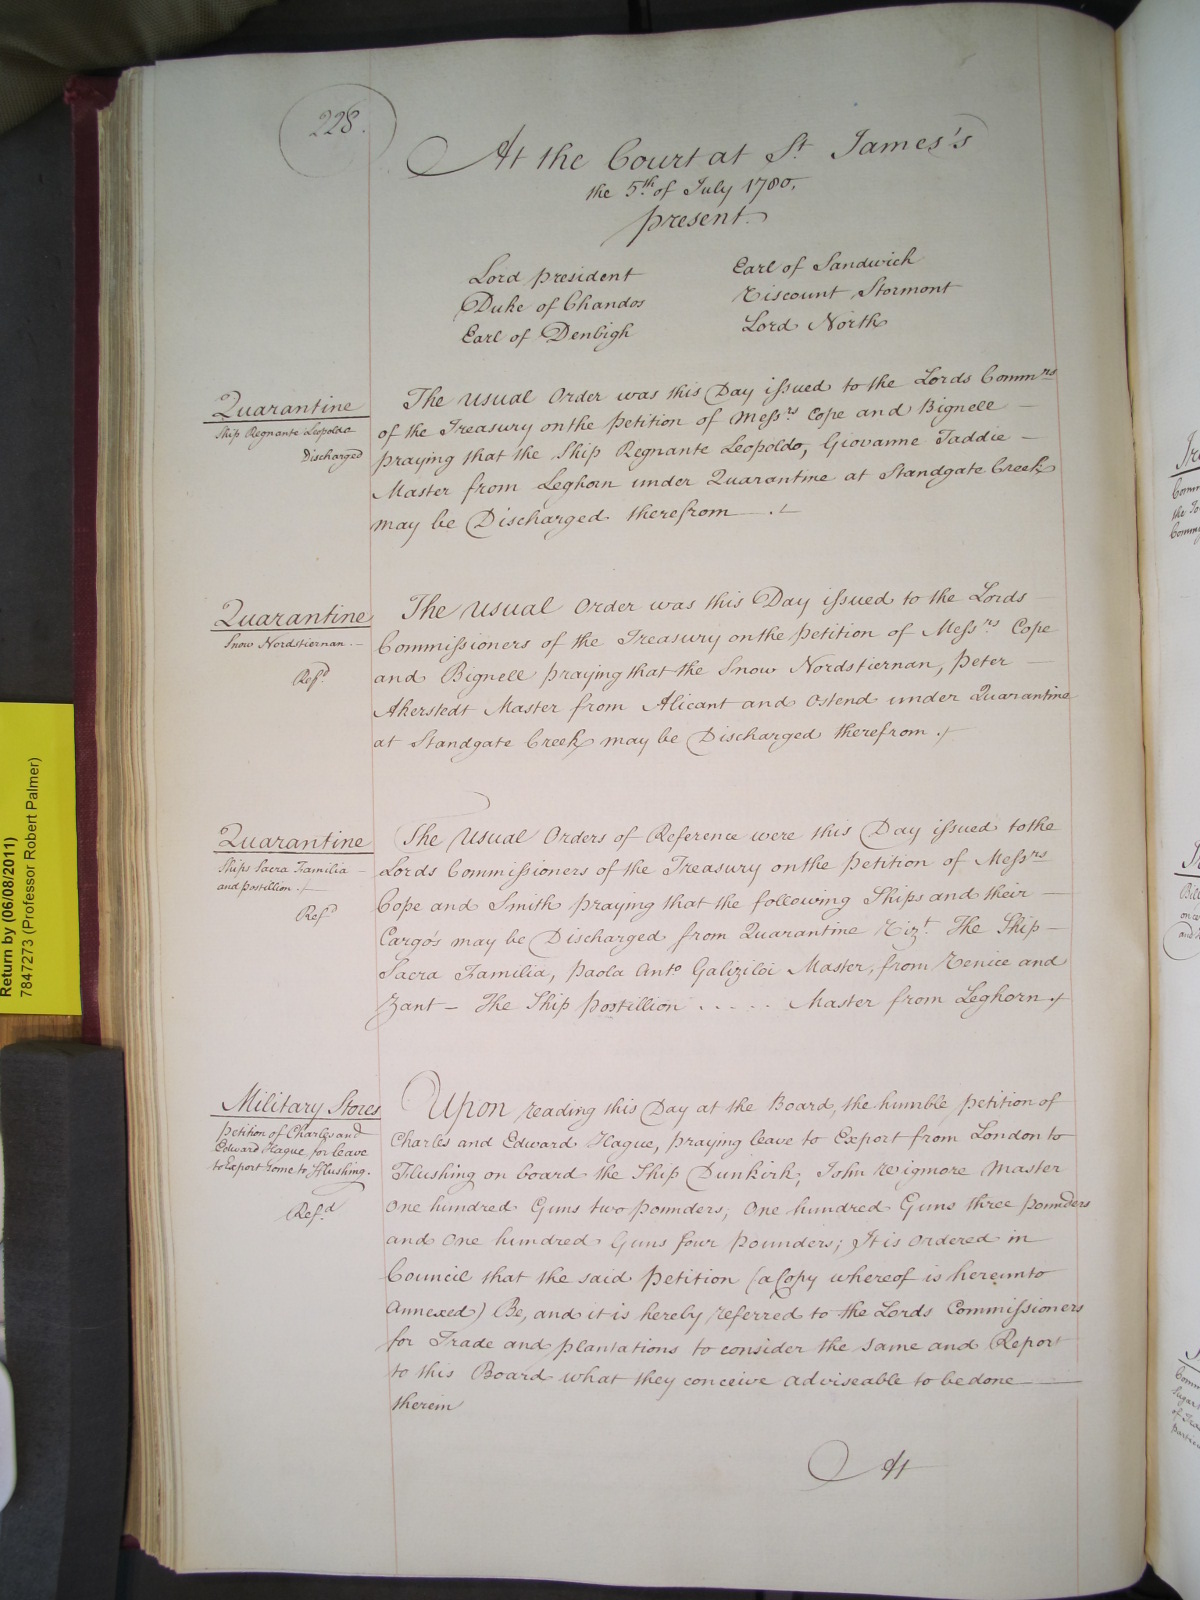 228.
At the Court at St. James's
the 5th of July 1780.
present.
Lord president
Duke of Chandos
Earl of Denbigh
Earl of Sandwich
Viscount Stormont
Lord North
Quarantine
Ship Regnante Leopoldo
Discharged
The usual Order was this Day issued to the Lords Commrs
of the Treasury on the Petition of Messrs Cope and Bignell —
praying that the Ship Regnante Leopoldo, Giovanne Taddie —
Master from Leghorn under Quarantine at Standgate Creek
may be Discharged therefrom —.
Quarantine
Snow Nordstiernan.—
Refd
The usual Order was this Day issued to the Lords —
Commissioners of the Treasury on the Petition of Messrs Cope
and Bignell praying that the Snow Nordstiernan, Peter —
Akerstedt Master from Alicant and Ostend under Quarantine
at Standgate Creek may be Discharged therefrom.
Quarantine
Ships Sacra Familia —
and Postillion.
Refd
The Usual Orders of Reference were this Day issued to the
Lords Commissioners of the Treasury on the Petition of Messrs
Cope and Smith praying that the following Ships and their —
Cargo's may be Discharged from Quarantine Vizt. The Ship —
Sacra Familia, Paola Anto Galiziloi Master, from Venice and
Zant — The Ship Postillion . . . . . Master from Leghorn.
Military Stores
Petition of Charles and
Edward Hague for leave
to Export some to Flushing.
Refd
Upon reading this Day at the Board, the humble petition of
Charles and Edward Hague, praying leave to Export from London to
Flushing on board the Ship Dunkirk, John Wigmore Master
One hundred Guns two pounders; One hundred Guns three pounders
and One hundred Guns four pounders; It is Ordered in
Council that the said Petition (a Copy whereof is hereunto
Annexed) Be, and it is hereby referred to the Lords Commissioners
for Trade and plantations to consider the same and Report
to this Board what they conceive adviseable to be done —
therein
At
Return by (06/08/2011)
7847273 (Professor Robert Palmer)